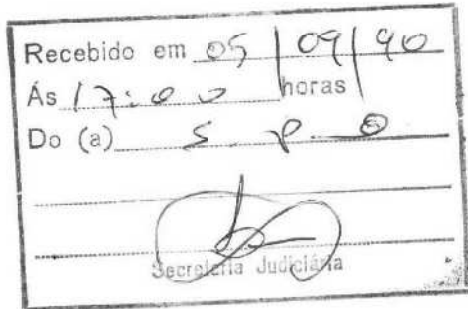 Recebido em 05/09/90
Ás 17:00 horas
Do (a) S. P. O
Secretaria Judiciária